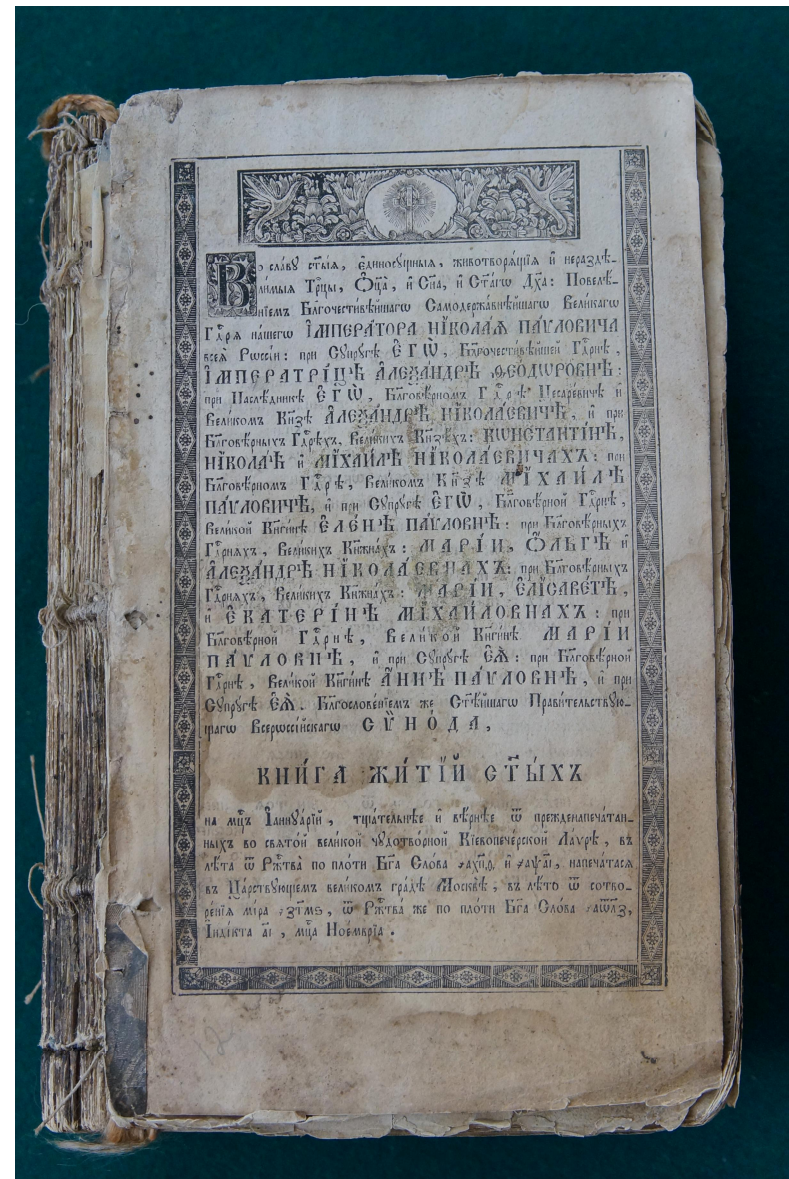 Во славу ст҃ы́ѧ, є҆диносꙋ́щныѧ, животворѧ́щїѧ и҆ нераздѣ́-
ли́мыѧ Трⷪ҇цы, Ѻ҆ц҃а̀, и҆ Сн҃а, и҆ Ст҃а́гѡ Дх҃а: Повелѣ́-
нїемъ Бл҃гочести́вѣйшагѡ Самодержа́внѣйшагѡ Вели́кагѡ
Гдⷭ҇рѧ на́шегѡ І҆МПЕРА́ТОРА НІКОЛА́Ѧ ПА́ѵЛОВИЧА
всеѧ̀ Рѡссі́и: при Сꙋпрꙋ́гѣ Є҆ГѠ̀, Бл҃гочести́вѣйшей Гдⷭ҇рнѣ,
І҆МПЕРАТРІ́ЦѢ А҆ЛЕѮА́НДРѢ ѲЕО́ДѠРОВНѢ:
при Наслѣ́дникѣ Є҆ГѠ̀, Бл҃говѣ́рномъ Гдⷭ҇рѣ̀ Цесаре́вичѣ и҆
Вели́комъ Кн҃зѣ А҆ЛЕѮА́НДРѢ НІКОЛА́ЕВИЧѢ, и҆ при
Бл҃говѣ́рныхъ Гдⷭ҇рѣхъ, Вели́кихъ Кн҃зѣхъ: КѠНСТАНТІ́НѢ,
НІКОЛА́Ѣ и҆ МІХАИ́ЛѢ НІКОЛА́ЕВИЧАХЪ: при
Бл҃говѣ́рномъ Гдⷭ҇рѣ, Вели́комъ Кн҃зѣ МІХАИ́ЛѢ
ПА́ѵЛОВИЧѢ, и҆ при Сꙋпрꙋ́гѣ Є҆ГѠ̀, Бл҃говѣ́рной Гдⷭ҇рнѣ,
Вели́кой Кн҃ги́нѣ Є҆ЛЕ́НѢ ПА́ѵЛОВНѢ: при Бл҃говѣ́рныхъ
Гдⷭ҇рнѧхъ, Вели́кихъ Кн҃жна́хъ: МАРІ́И, Ѻ҆́ЛЬГѢ и҆
А҆ЛЕѮА́НДРѢ НІКОЛА́ЕВНАХЪ: при Бл҃говѣ́рныхъ
Гдⷭ҇рнѧхъ, Вели́кихъ Кн҃жна́хъ: МАРІ́И, Є҆ЛІСАВЕ́ТѢ,
и҆ Є҆КАТЕРІ́НѢ МІХАИ́ЛОВНАХЪ: при
Бл҃говѣ́рной Гдⷭ҇рнѣ, Вели́кой Кн҃ги́нѣ МАРІ́И
ПА́ѵЛОВНѢ, и҆ при Сꙋпрꙋ́гѣ Є҆Ѧ̀: при Бл҃говѣ́рной
Гдⷭ҇рнѣ, Вели́кой Кн҃ги́нѣ А҆́ННѢ ПА́ѵЛОВНѢ, и҆ при
Сꙋпрꙋ́гѣ Є҆Ѧ̀. Бл҃гослове́нїемъ же Ст҃ѣ́йшагѡ Прави́тельствꙋю-
щагѡ Всерѡссі́йскагѡ СѴНО́ДА,
КНИ́ГА ЖИТІ́Й СТ҃Ы́ХЪ
на мцⷭ҇ъ І҆аннꙋа́рїй, тща́тельнѣе и҆ вѣ́рнѣе ѿ прежденапеча́тан-
ныхъ во свѧто́й вели́кой чꙋдотво́рной Кїевопече́рской Ла́ѵрѣ, въ
лѣ̑та ѿ Ржⷭ҇тва̀ по пло́ти Бг҃а Сло́ва ҂ахп҃ѳ, и҆ ҂аѱ҃аі, напеча́тасѧ
въ Ца́рствꙋющемъ вели́комъ гра́дѣ Москвѣ̀, въ лѣ́то ѿ сотво-
ре́нїѧ мі́ра ҂зт҃мѕ, ѿ Ржⷭ҇тва́ же по пло́ти Бг҃а Сло́ва ҂аѿл҃з,
І҆ндї́кта а҃і, мцⷭ҇а Ное́мврїа.
12